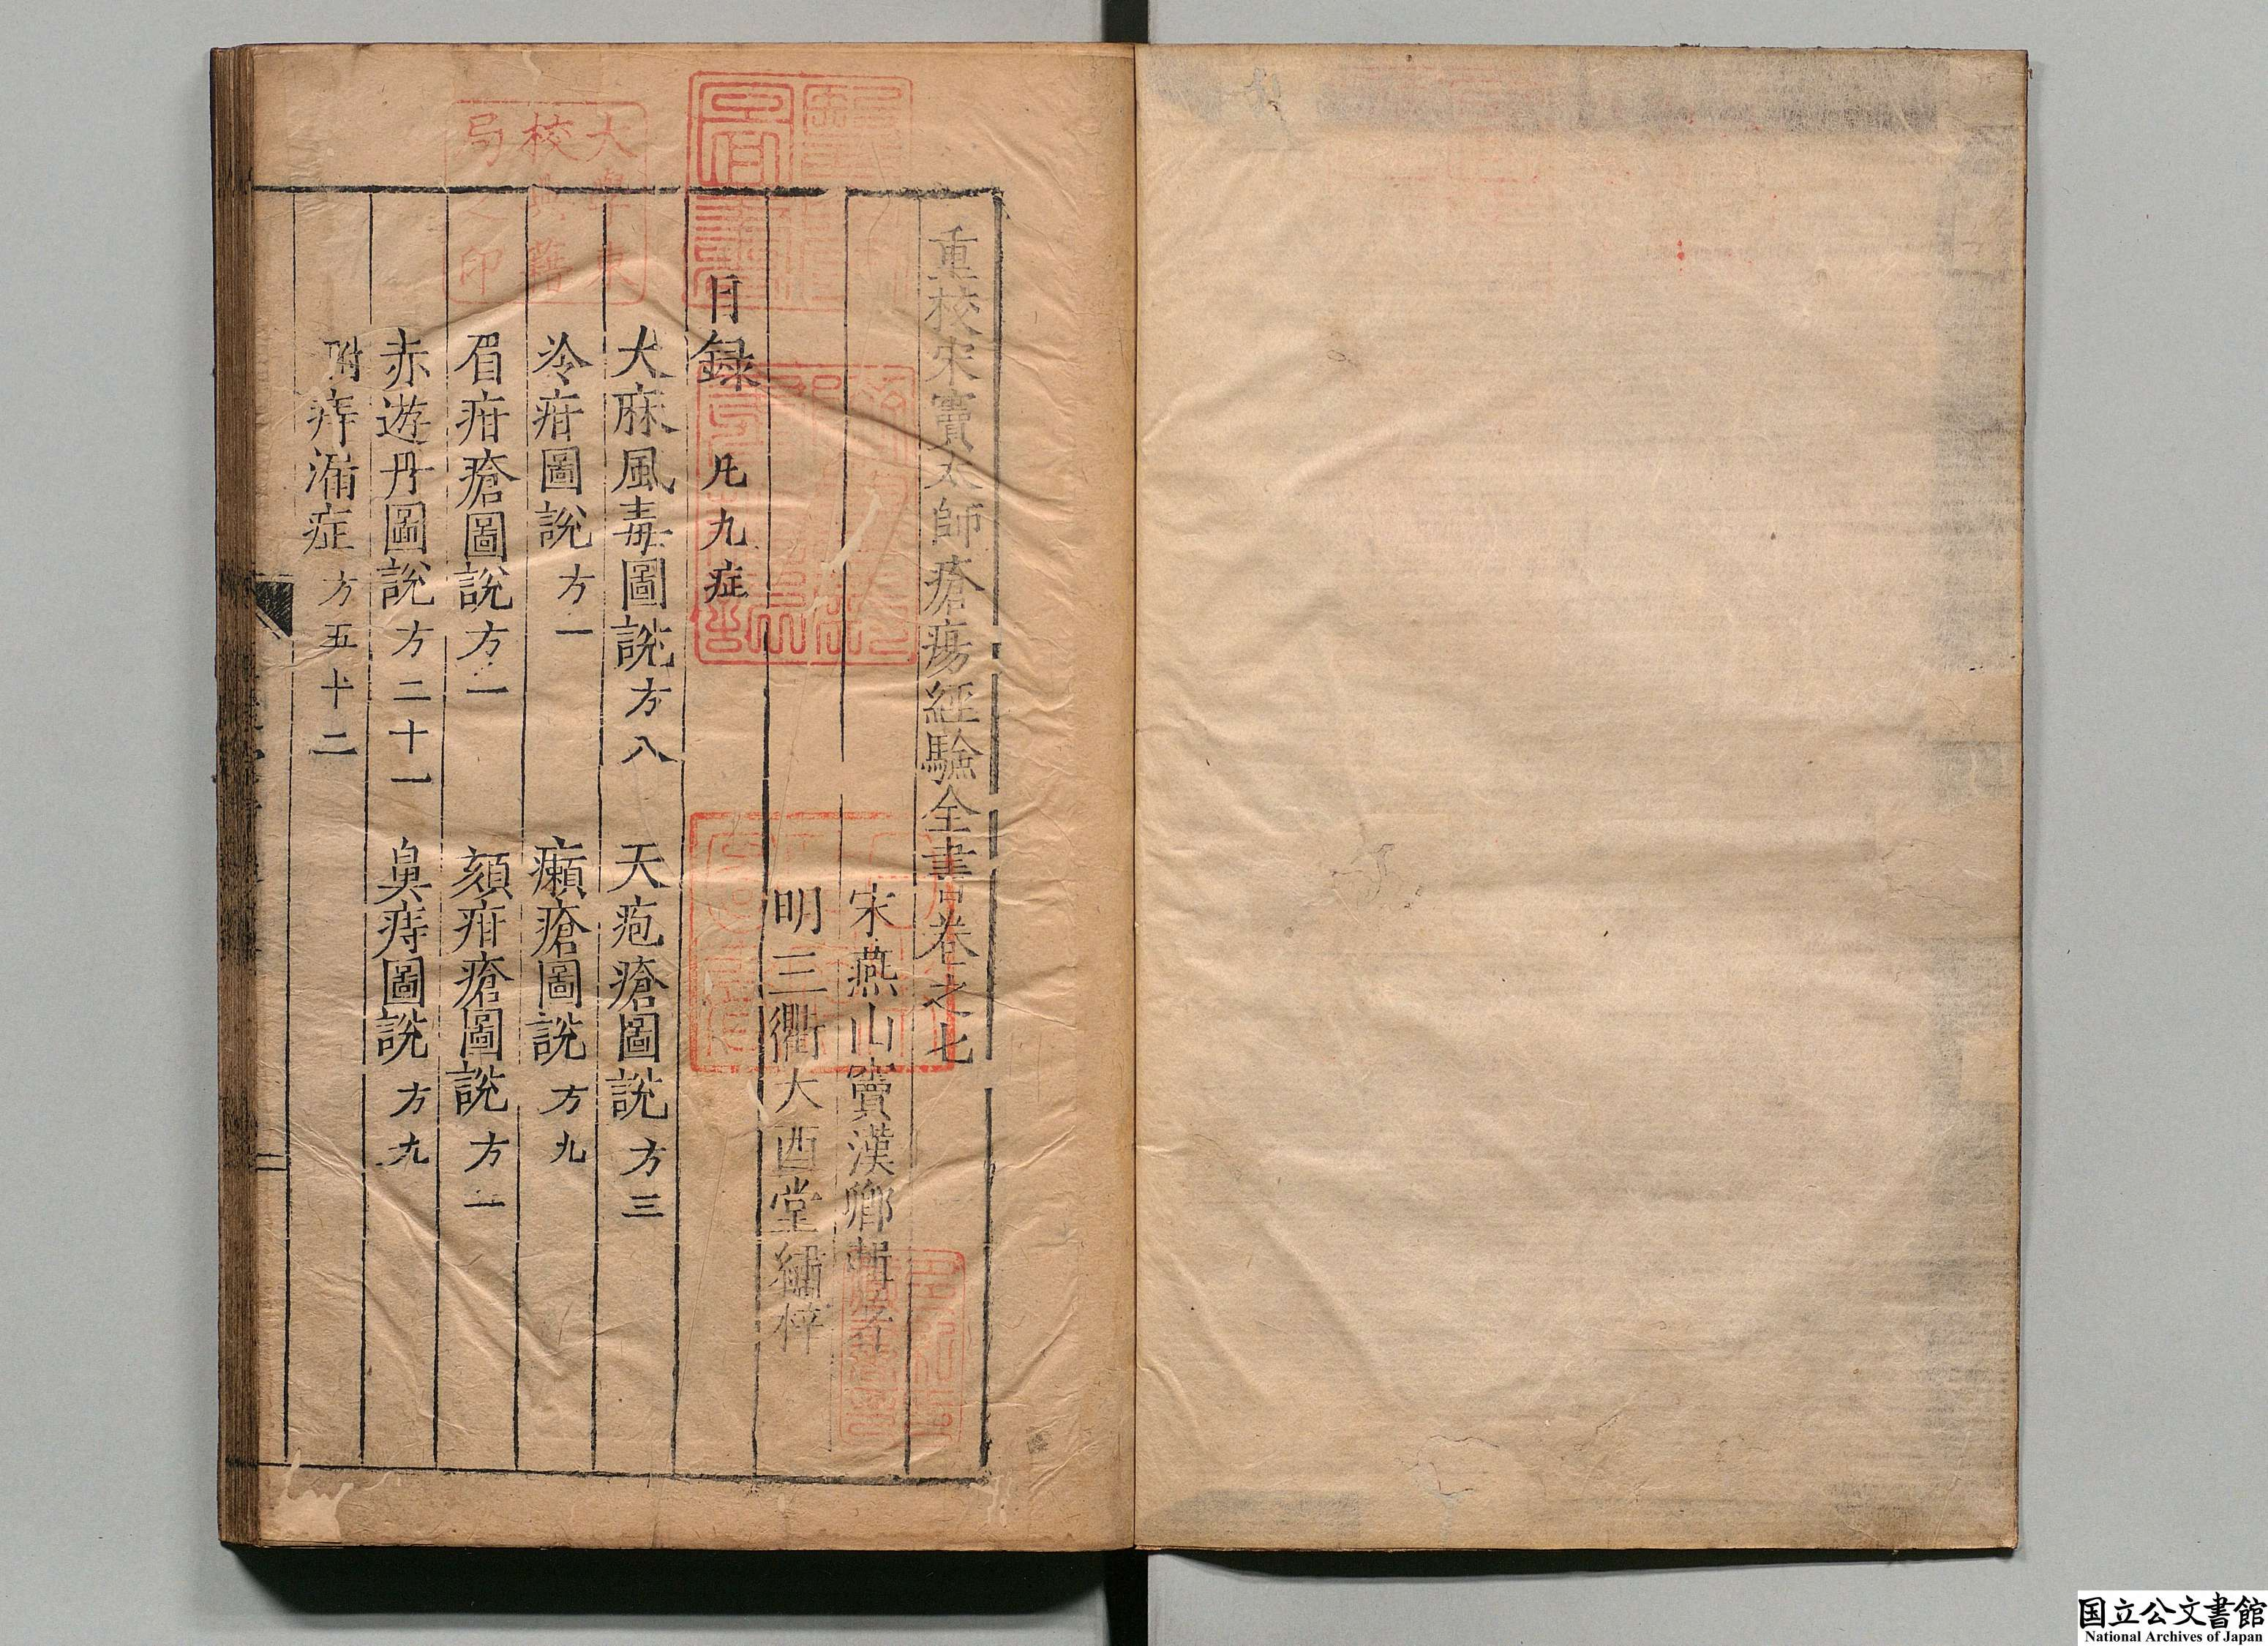 重校宋竇太師瘡瘍經驗全書卷之七
宋燕山竇漢卿輯著
明三衢大酉堂繡梓
目録 凡九症
大麻風毒圖說方八 天疱瘡圖說方三
冷疳圖說方一 癩瘡圖說方九
眉疳瘡圖說方一 頦疳瘡圖說方一
赤遊丹圖說方二十一 鼻痔圖說方九
附痔漏症方五十二
大學東
校典籍
局之印
国立公文書館
National Archives of Japan